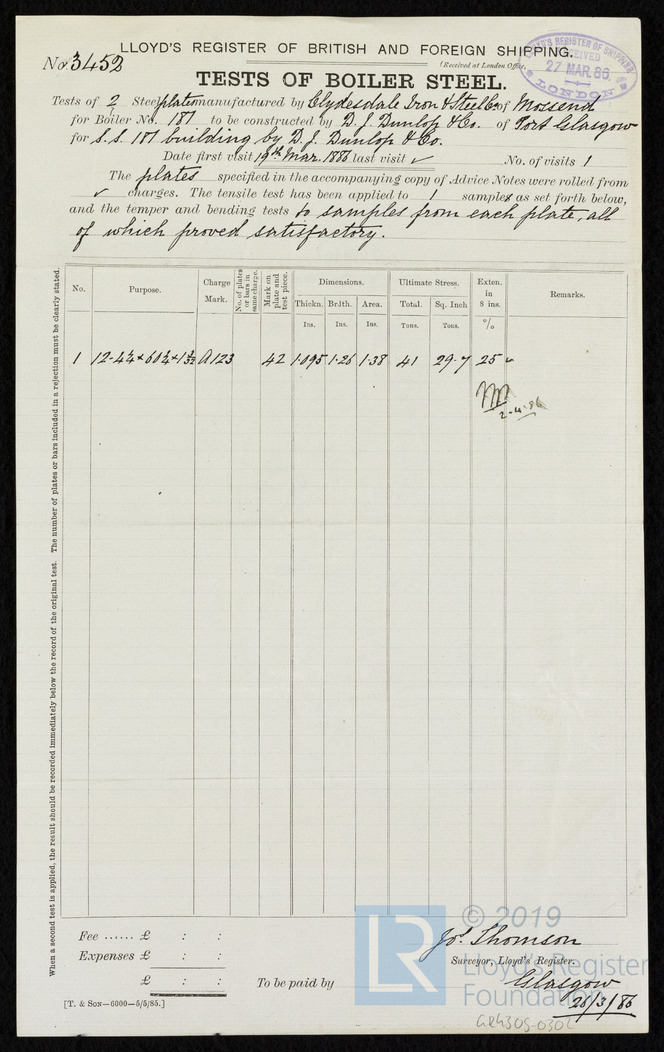 LLOYD'S REGISTER OF BRITISH AND FOREIGN SHIPPING.
No. 3452
(Received at London Office,
LLOYD'S REGISTER OF SHIPPING
RECEIVED
27 MAR. 86
LONDON
TESTS OF BOILER STEEL.
Tests of 2 Steel plates manufactured by Clydesdale Iron & Steel Co of Mossend
for Boiler No. 187 to be constructed by D. J. Dunlop & Co. of Port Glasgow
for S.S. 187 building by D. J. Dunlop & Co.
Date first visit 19th Mar. 1886 last visit ✓ No. of visits 1
The plates specified in the accompanying copy of Advice Notes were rolled from
✓ charges. The tensile test has been applied to 1 samples as set forth below,
and the temper and bending tests to samples from each plate, all
of which proved satisfactory.
When a second test is applied, the result should be recorded immediately below the record of the original test. The number of plates or bars included in a rejection must be clearly stated.
No. Purpose. Charge Mark. No. of plates or bars in same charge. Mark on plate and test piece. Dimensions. Ultimate Stress. Exten. in 8 ins. Remarks.
Thickn. Br'dth. Area. Total. Sq. Inch
Ins. Ins. Ins. Tons. Tons. %
1 A123 42 1.095 1.26 1.38 41 29.7 25 ✓
2-4-86
Fee ...... £ : :
Expenses £ : :
£ : :
To be paid by
Jos. Thomson
Surveyor, Lloyd's Register.
Glasgow
26/3/86
[T. & SON—6000—5/5/85.]
LR
© 2019
Lloyd's Register
Foundation